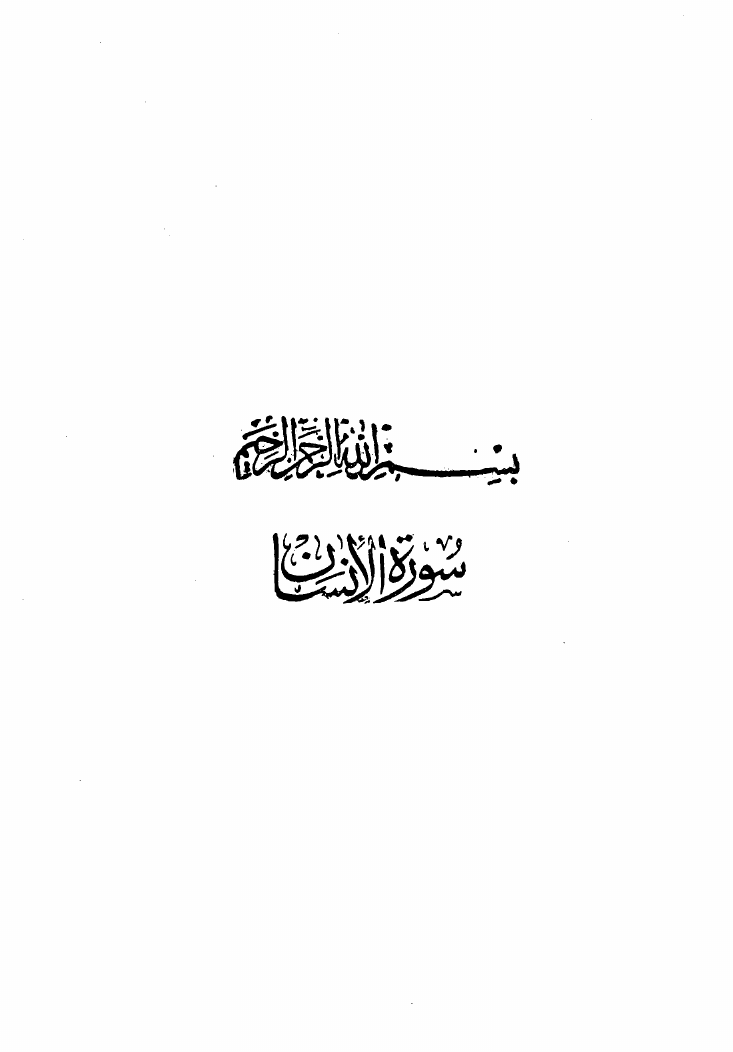 بِسْمِ اللَّهِ الرَّحْمَنِ الرَّحِيمِ
سُورَةُ الْإِنْسَانِ